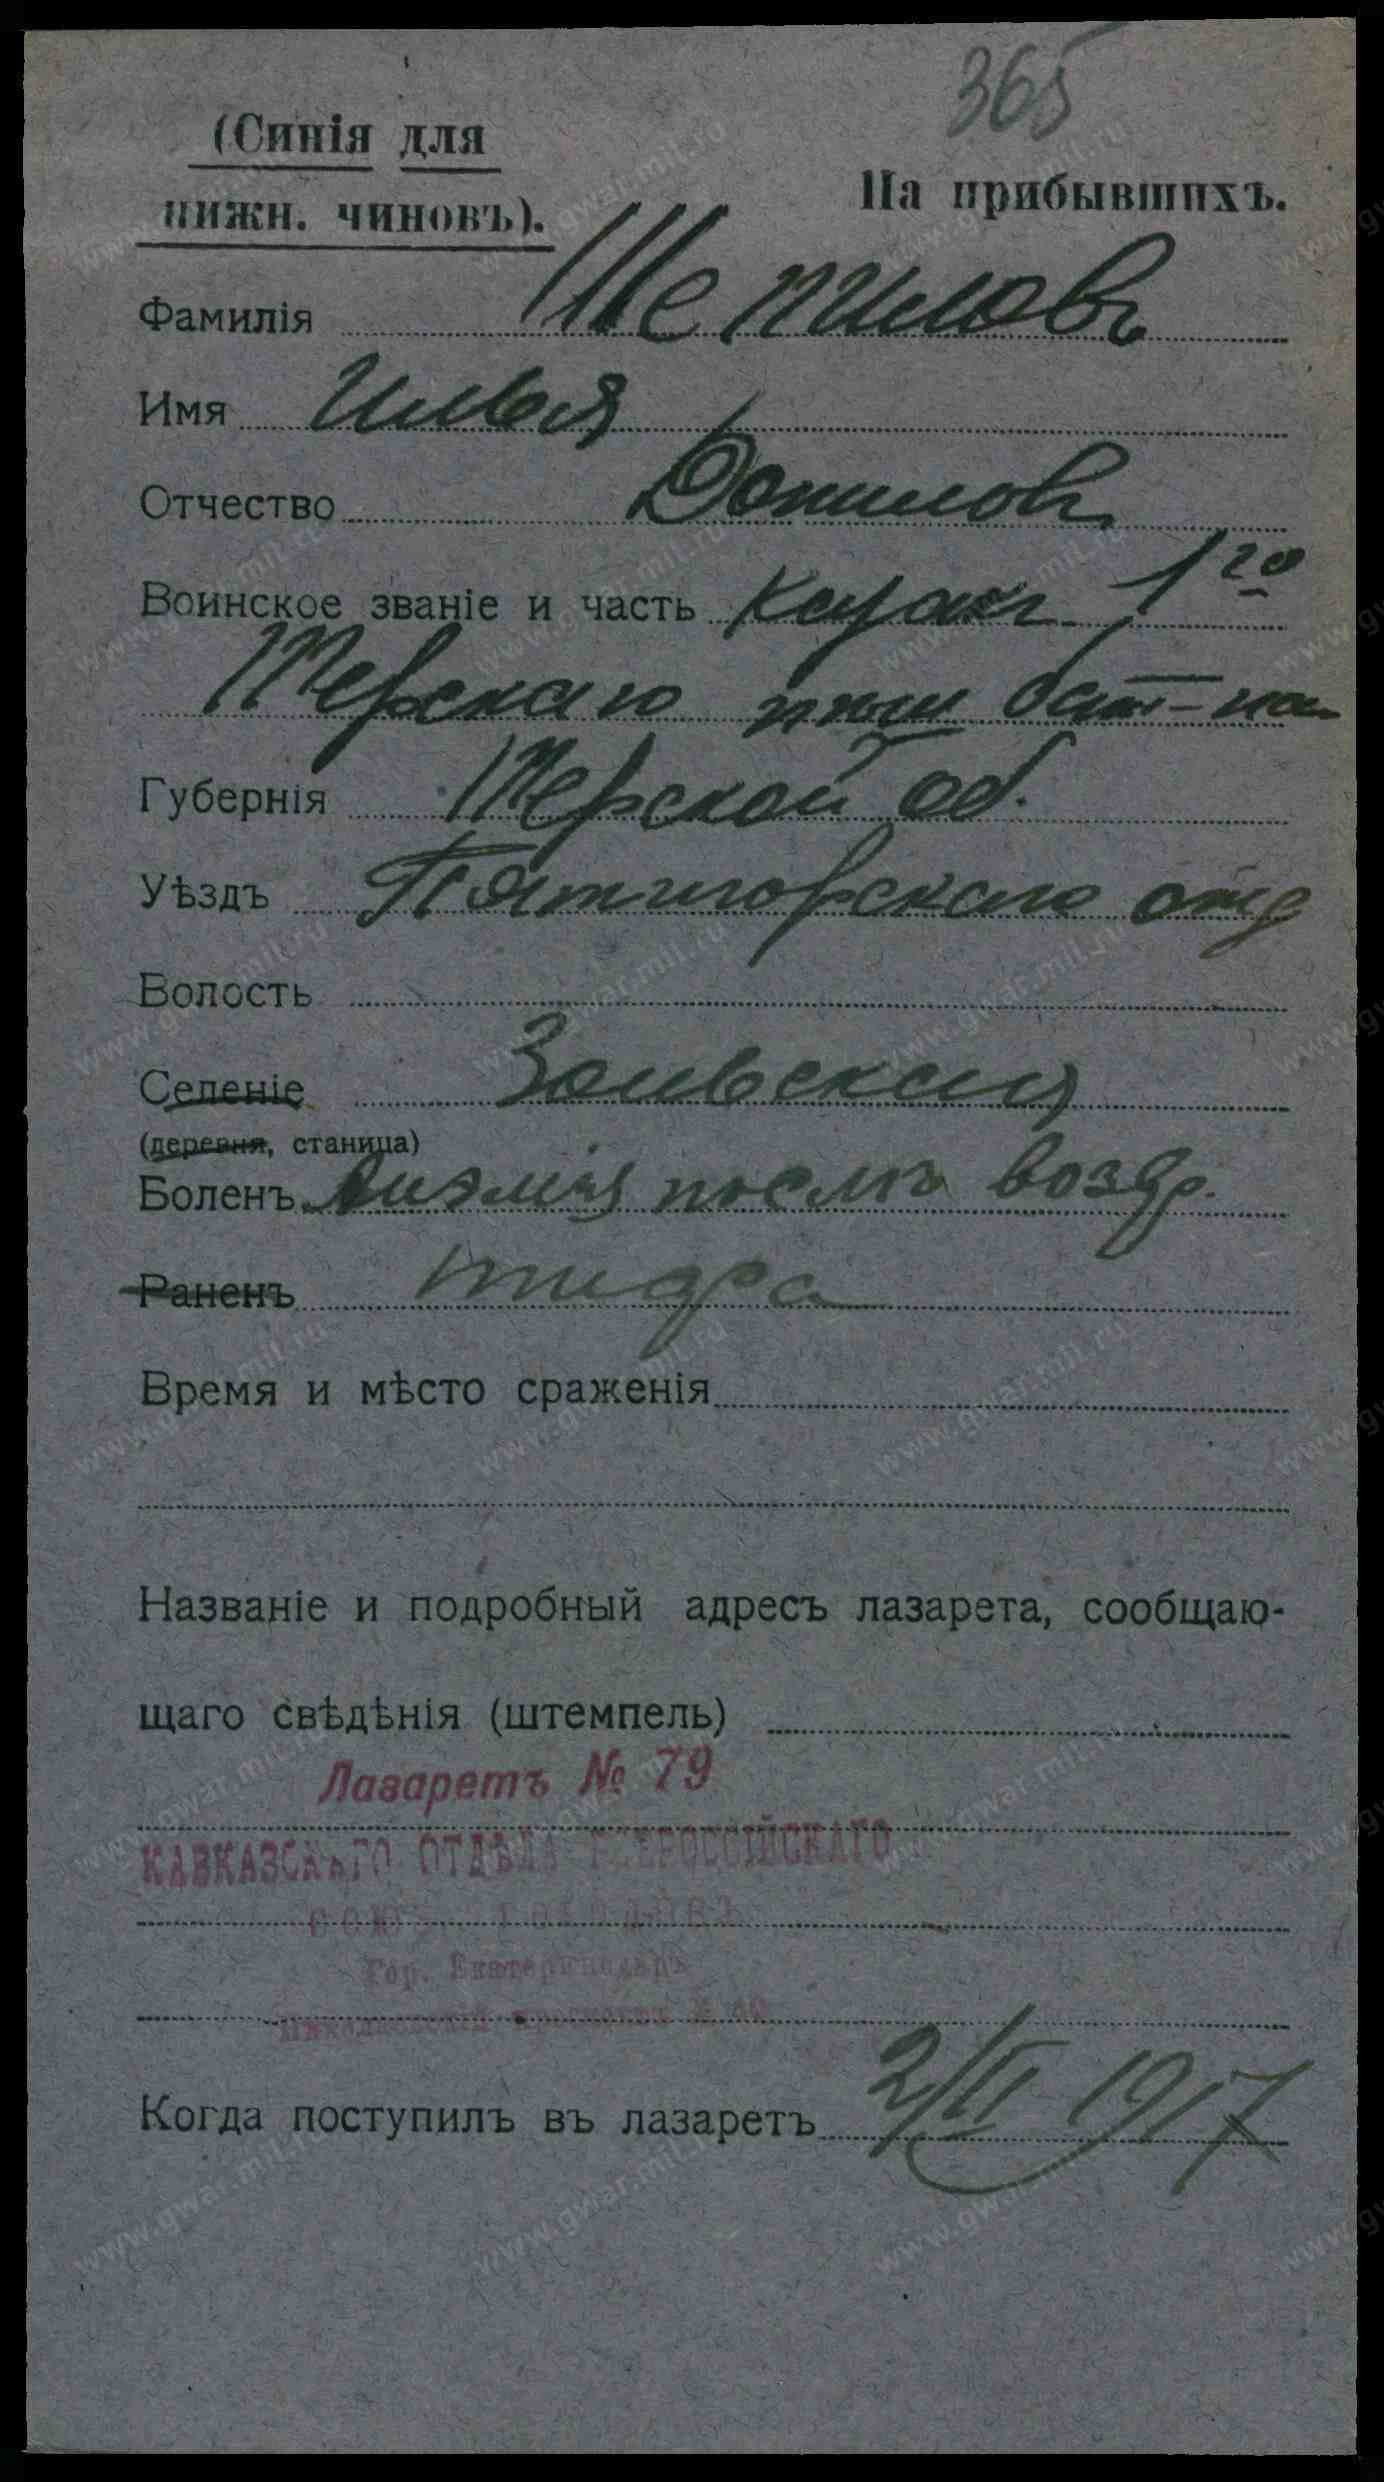 365
(Синія для
нижн. чиновъ).
На прибывшихъ.
Фамилія Шепиловъ
Имя Илья
Отчество Данилов
Воинское званіе и часть Казак 1го
Терскаго плас бат-на
Губернія Терской об.
Уѣздъ Пятигорскаго отд
Волость
Селеніе
(деревня, станица)
Боленъ Анэмія послѣ возвр.
Раненъ тифа
Время и мѣсто сраженія
Названіе и подробный адресъ лазарета, сообщаю-
щаго свѣдѣнія (штемпель)
Лазаретъ № 79
КАВКАЗСКАГО ОТДѢЛА ВСЕРОССІЙСКАГО
СОЮЗА ГОРОДОВЪ
Гор. Екатеринодаръ
Когда поступилъ въ лазаретъ 2/VI 1917